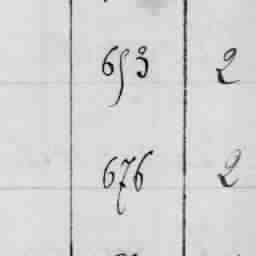 653 2
676 2